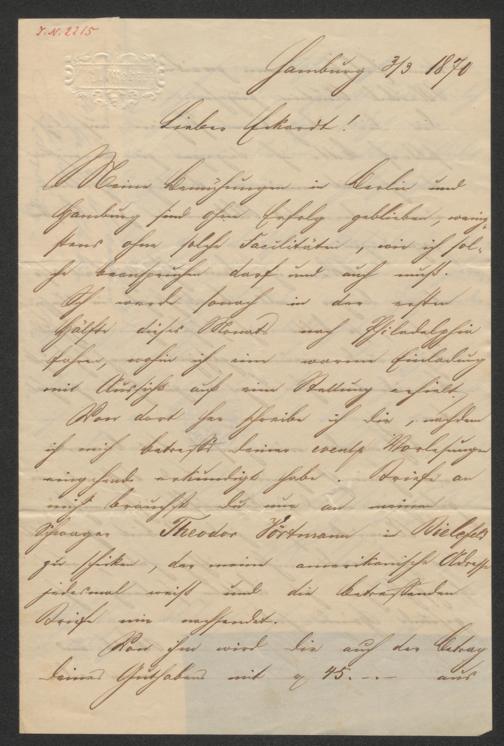 J.N. 2215
Hamburg 3/3 1870
Lieber Eckardt!
Meine Bemühungen in Berlin und
Hamburg sind ohne Erfolg geblieben, wenig-
stens ohne solche Facilitäten, wie ich sol-
che beanspruchen darf und auch muß.
Ich werde sonach in der ersten
Hälfte dieses Monats nach Philadelphia
fahren, wohin ich eine warme Einladung
mit Aussicht auf eine Stellung erhielt.
Von dort her schreibe ich dir, nachdem
ich mich betreffs Deiner event. Vorlesungen
eingehends erkundigt habe. Briefe an
mich brauchst Du nur an meinen
Schwager Theodor Vörtmann in Bielefeld
zu schicken, der meine amerikanische Adresse
jedesmal weiß und die betreffenden
Briefe mir nachsendet.
Von ihm wird dir auch der Betrag
Deines Guthabens mit 45.-.- aus